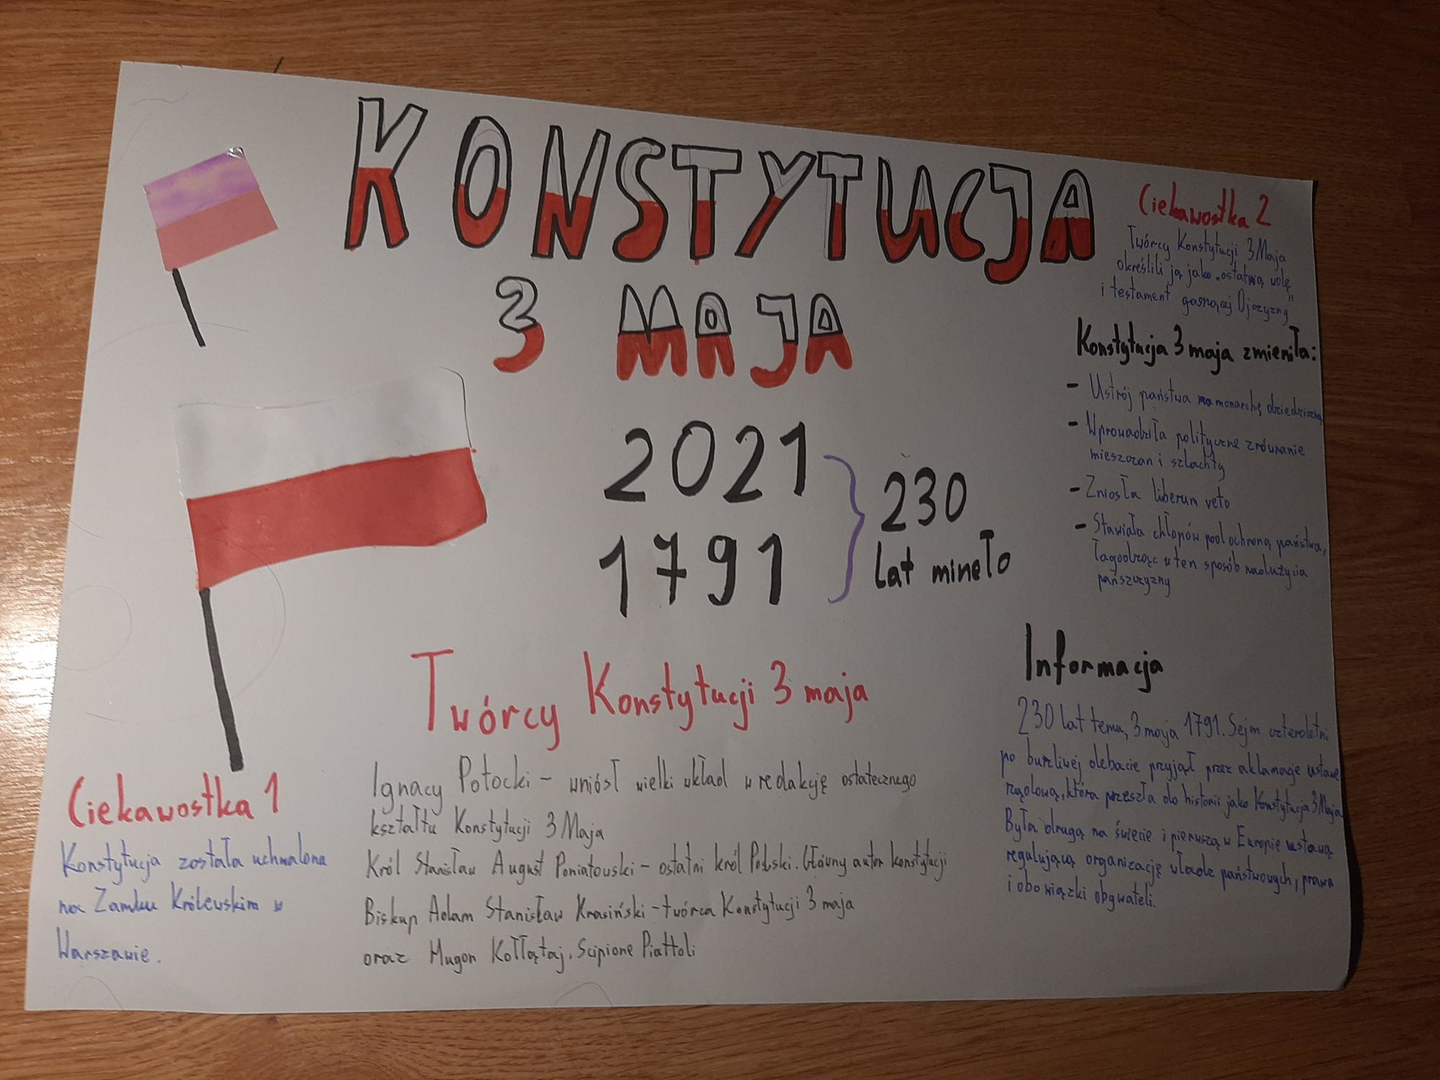 KONSTYTUCJA
3 MAJA
2021
1791
230
lat mineło
Ciekawostka 2
Twórcy Konstytucji 3 Maja
określili ją jako „ostatnią wolę
i testament gasnącej Ojczyzny"
Konstytucja 3 maja zmieniła:
- Ustrój państwa na monarchę dziedziczną
- Wprowadziła polityczne zrównanie
mieszczan i szlachty
- Zniosła liberum veto
- Stawiała chłopów pod ochroną państwa,
łagodząc w ten sposób nadużycia
pańszczyzny
Informacja
230 lat temu, 3 maja 1791. Sejm czteroletni
po burzliwej debacie przyjął przez aklamację ustawę
rządową, która przeszła do historii jako Konstytucja 3 Maja
Była drugą na świecie i pierwszą w Europie ustawą
regulującą organizację władz państwowych, prawa
i obowiązki obywateli.
Twórcy Konstytucji 3 maja
Ignacy Potocki - wniósł wielki wkład w redakcję ostatecznego
kształtu Konstytucji 3 Maja
Król Stanisław August Poniatowski - ostatni król Polski. Główny autor konstytucji
Biskup Adam Stanisław Krasiński - twórca Konstytucji 3 maja
oraz Mugon Kołłątaj, Scipione Piattoli
Ciekawostka 1
Konstytucja została uchwalona
na Zamku Królewskim w
Warszawie.